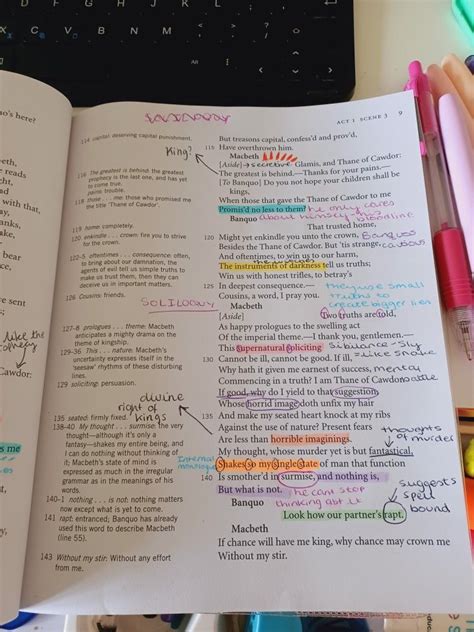 o's here?
SOLILOQUY
ACT 1 SCENE 3 9
114 capital: deserving capital punishment.
116 The greatest is behind: the greatest
prophecy is the last one, and has yet
to come true.
pains: trouble.
118 those . . . me: those who promised me
the title 'Thane of Cawdor'.
119 home: completely.
120 enkindle . . . crown: fire you to strive
for the crown.
122–5 oftentimes . . . consequence: often,
to bring about our damnation, the
agents of evil tell us simple truths to
make us trust them, then they can
deceive us in important matters.
126 Cousins: friends.
SOLILOQUY
127–8 prologues . . . theme: Macbeth
anticipates a mighty drama on the
theme of kingship.
129–36 This . . . nature: Macbeth's
uncertainty expresses itself in the
'seesaw' rhythms of these disturbing
lines.
129 soliciting: persuasion.
divine
right of
kings
135 seated: firmly fixed.
138–40 My thought . . . surmise: the very
thought—although it's only a
fantasy—shakes my entire being, and
I can do nothing without thinking of
it; Macbeth's state of mind is
expressed as much in the irregular
grammar as in the meanings of his
words.
140–1 nothing . . . is not: nothing matters
now except what is yet to come.
141 rapt: entranced; Banquo has already
used this word to describe Macbeth
(line 55).
143 Without my stir: Without any effort
from me.
King?
But treasons capital, confess'd and prov'd,
115 Have overthrown him.
Macbeth
[Aside] → secretive Glamis, and Thane of Cawdor:
The greatest is behind.—Thanks for your pains.—
[To Banquo] Do you not hope your children shall be
kings,
When those that gave the Thane of Cawdor to me
Promis'd no less to them? he only cares
Banquo about himself
bloodline
That trusted home,
120 Might yet enkindle you unto the crown, Banquo's
Besides the Thane of Cawdor. But 'tis strange, cautious
And oftentimes, to win us to our harm,
The instruments of darkness tell us truths;
Win us with honest trifles, to betray's
125 In deepest consequence.— they use small
truths to
create bigger lies
Cousins, a word, I pray you.
Macbeth
[Aside] Two truths are told,
As happy prologues to the swelling act
Of the imperial theme.—I thank you, gentlemen.—
This supernatural soliciting sibilance - sly
= like snake
130 Cannot be ill, cannot be good. If ill,
Why hath it given me earnest of success, mental
Commencing in a truth? I am Thane of Cawdor. battle
If good, why do I yield to that suggestion
Whose horrid image doth unfix my hair
135 And make my seated heart knock at my ribs
Against the use of nature? Present fears
Are less than horrible imaginings. thoughts
of murder
My thought, whose murder yet is but fantastical,
Internal
monologue
Shakes so my single state of man that function
140 Is smother'd in surmise, and nothing is,
But what is not. he cant stop
thinking abt it
suggests
spell
bound
Banquo
Look how our partner's rapt.
Macbeth
If chance will have me king, why chance may crown me
Without my stir.